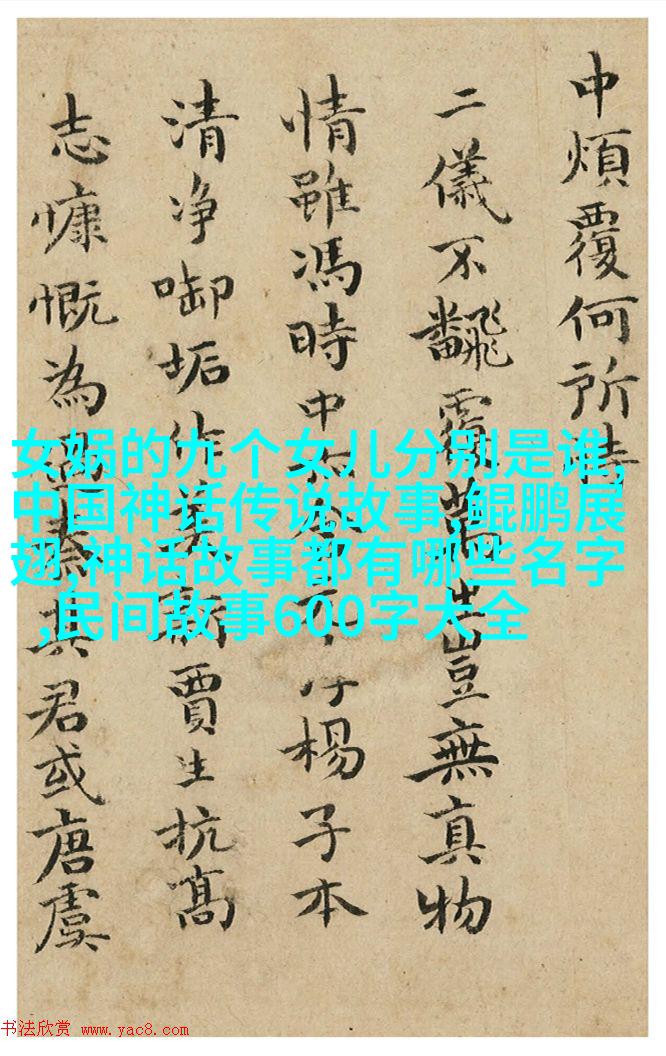 中煩覆何所
二儀不飜覆豈無真物
情雖馮時中不楊子本
清净啣垢作美新賈生抗高
志慷慨為過秦其君或唐虞
女娲的九个女儿分别是谁,
中国神话传说故事,鲲鹏展
翅,神话故事都有哪些名字
,民间故事600字大全
书法欣赏 www.yac8.com